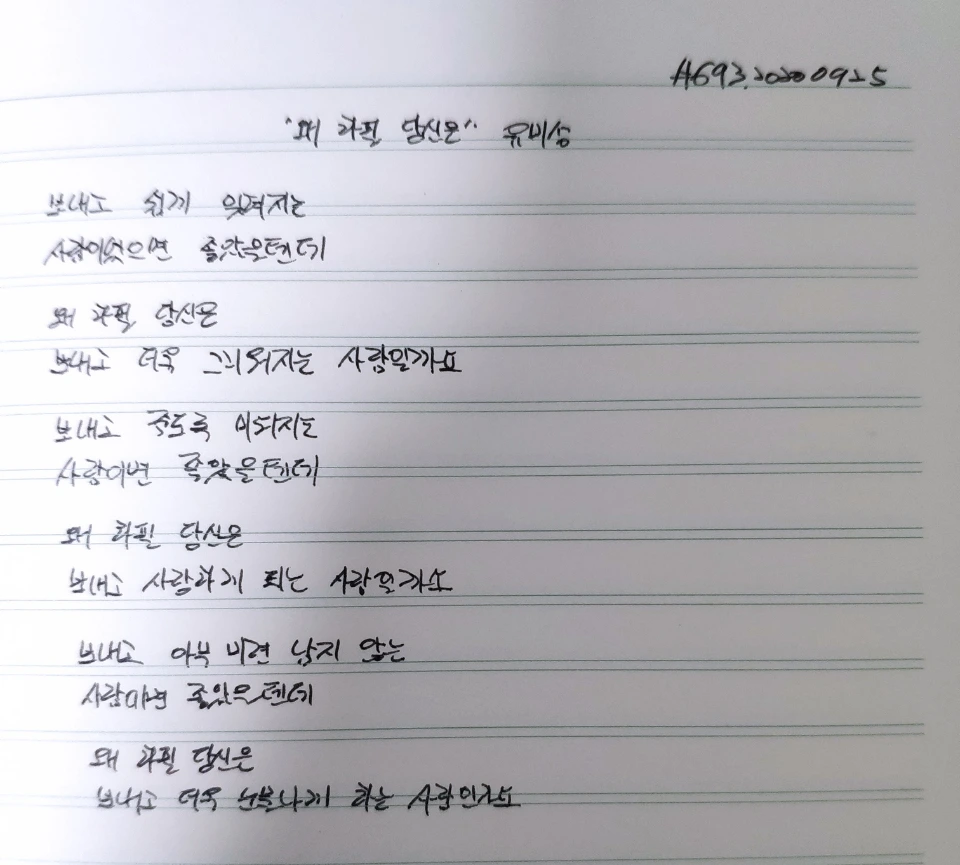 #693.20200925
"왜 하필 당신은" 유미성
보내고 쉽게 잊혀지는
사람이었으면 좋았을텐데
왜 하필 당신은
보내고 더욱 그리워지는 사람일까요
보내고 죽도록 미워지는
사람이면 좋았을텐데
왜 하필 당신은
보내고 사랑하게 되는 사람일까요
보내고 아무 미련 남지 않는
사람이면 좋았을텐데
왜 하필 당신은
보내고 더욱 눈물나게 하는 사람인가요